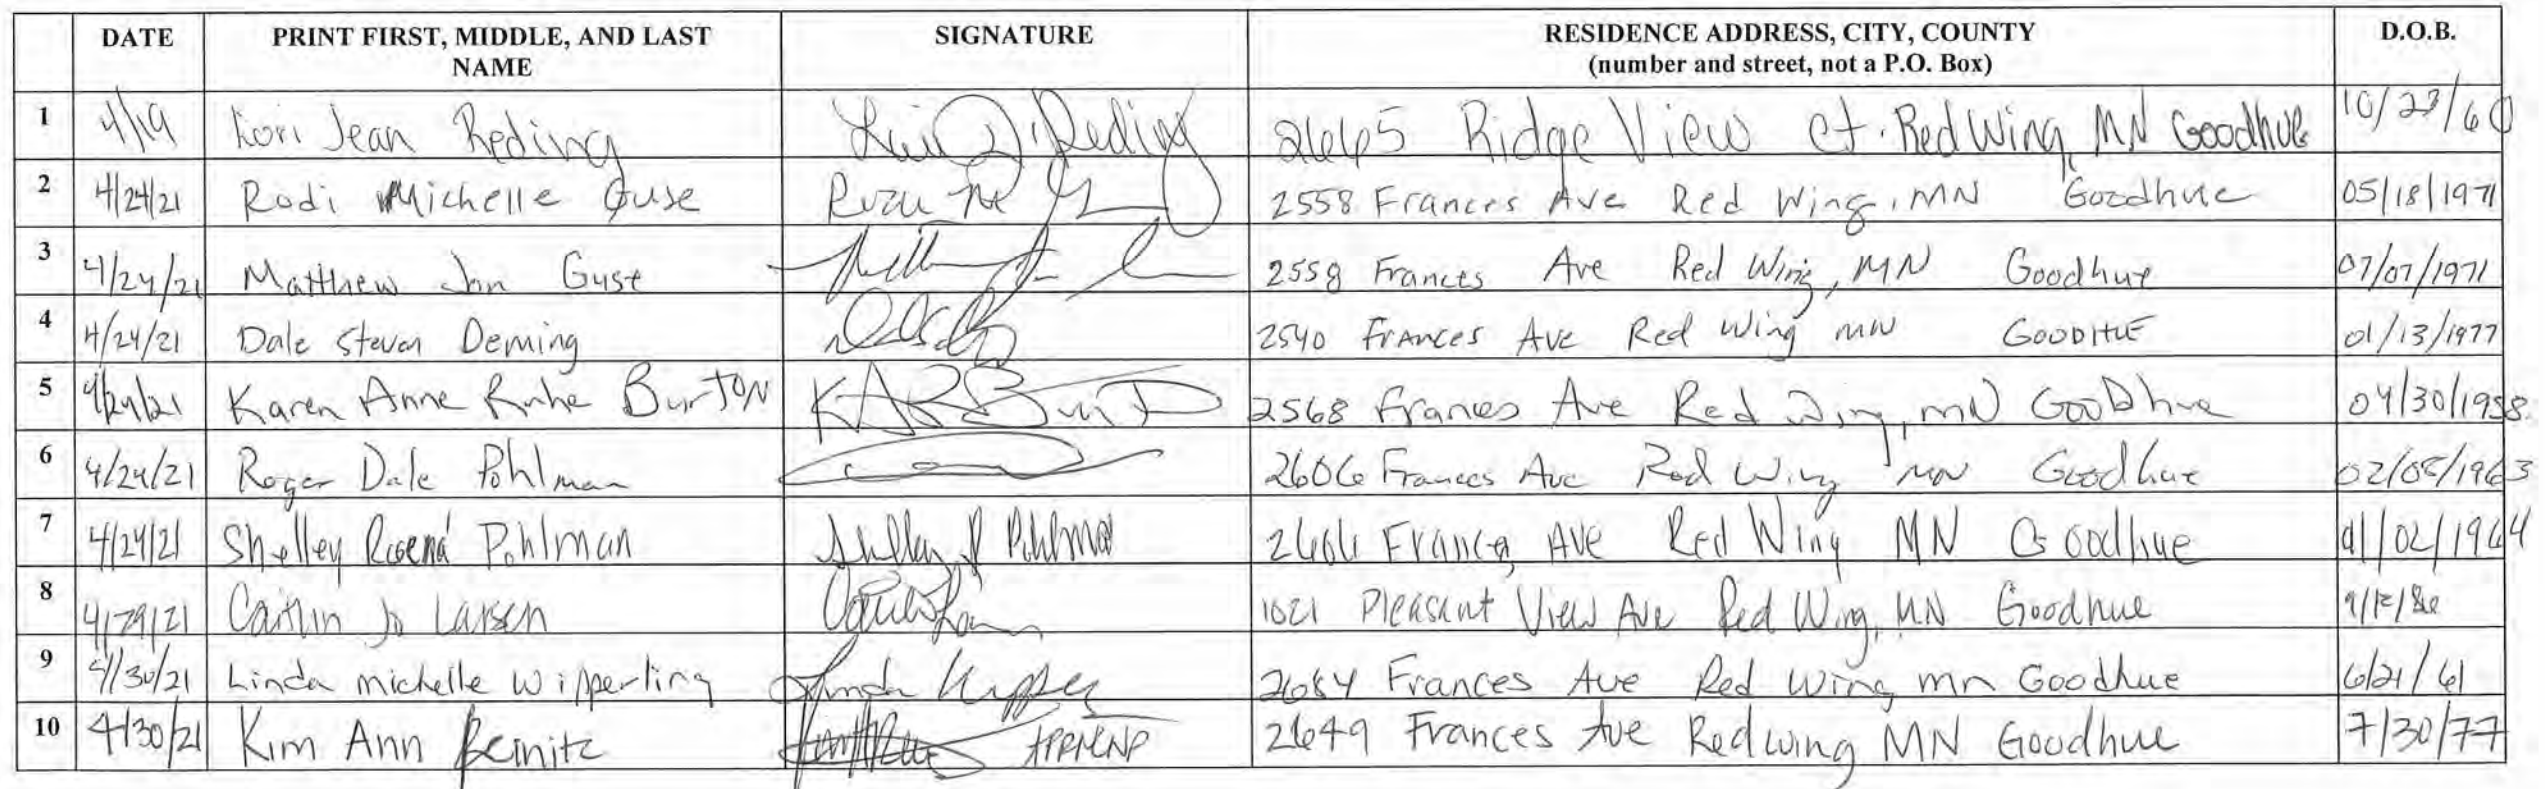 DATE PRINT FIRST, MIDDLE, AND LAST NAME SIGNATURE RESIDENCE ADDRESS, CITY, COUNTY (number and street, not a P.O. Box) D.O.B.
1 4/19 Lori Jean Reding Lori J. Reding 2665 Ridge View Ct. Red Wing, MN Goodhue 10/23/60
2 4/24/21 Rodi Michelle Guse 2558 Frances Ave Red Wing, MN Goodhue 05/18/1971
3 4/24/21 Matthew Jon Guse 2558 Frances Ave Red Wing, MN Goodhue 07/07/1971
4 4/24/21 Dale Steven Deming 2540 Frances Ave Red Wing MN GOODHUE 01/13/1977
5 4/24/21 Karen Anne Ruhe Burton KARB 2568 Frances Ave Red Wing, MN Goodhue 04/30/1958
6 4/24/21 Roger Dale Pohlman 2606 Frances Ave Red Wing, MN Goodhue 02/05/1963
7 4/24/21 Shelley Pohlman Shelley R Pohlman 2606 Frances Ave Red Wing MN Goodhue 01/02/1964
8 4/29/21 Caitlin Jo Larsen 1021 Pleasant View Ave Red Wing, MN Goodhue
9 4/30/21 Linda Michelle Wipperling Linda 2684 Frances Ave Red Wing mn Goodhue 6/21/61
10 4/30/21 Kim Ann Beinitz 2649 Frances Ave Red wing MN Goodhue 7/30/77